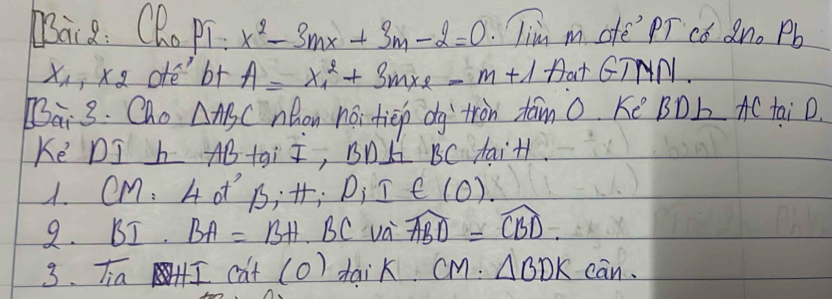 Bài 2: Cho PT: x² - 3mx + 3m - 2 = 0. Tìm m để PT có 2no Pb
x₁, x₂ để bt A = x₁² + 3mx₂ - m + 1 đạt GTNN.
Bài 3. Cho △ABC nhọn nội tiếp đg tròn tâm O. Kẻ BD ⊥ AC tại D.
Kẻ DI ⊥ AB tại I, BD ⊥ BC tại H.
1. CM: 4 đ' B; H; D; I ∈ (O).
2. BI . BA = BH . BC và \widehat{ABD} = \widehat{CBD}.
3. Tia HI cắt (O) tại K. CM: △BDK cân.